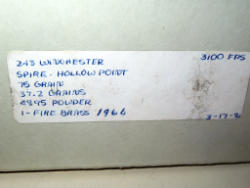 243 WINCHESTER 3100 FPS
SPIRE - HOLLOW POINT
75 GRAIN
37.2 GRAINS
4895 POWDER
1 - FIRE BRASS 1966